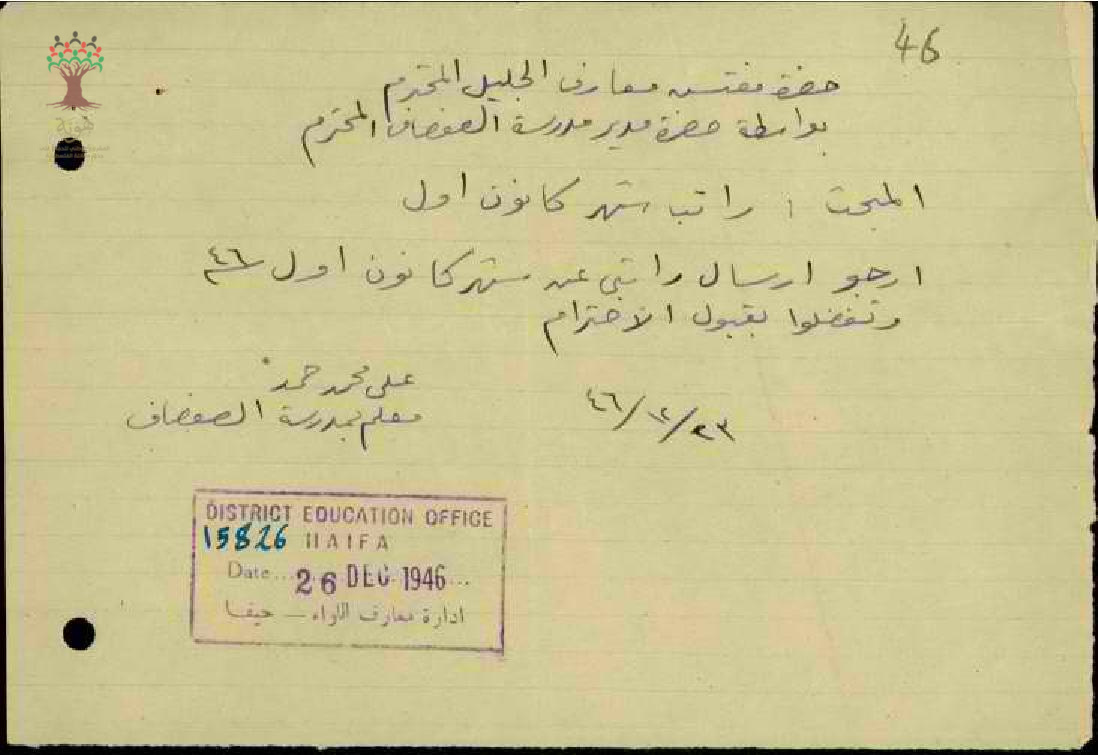 46
حضرة مفتش معارف الجليل المحترم
بواسطة حضرة مدير مدرسة الصفصاف المحترم
المبحث : راتب شهر كانون اول
ارجو ارسال راتبي عن شهر كانون اول ٤٦
وتفضلوا بقبول الاحترام
علي محمد حمد
معلم بمدرسة الصفصاف
٢٣/١٢/٤٦
DISTRICT EDUCATION OFFICE
15826 HAIFA
Date... 26 DEC 1946...
ادارة معارف اللواء — حيفا
هوية